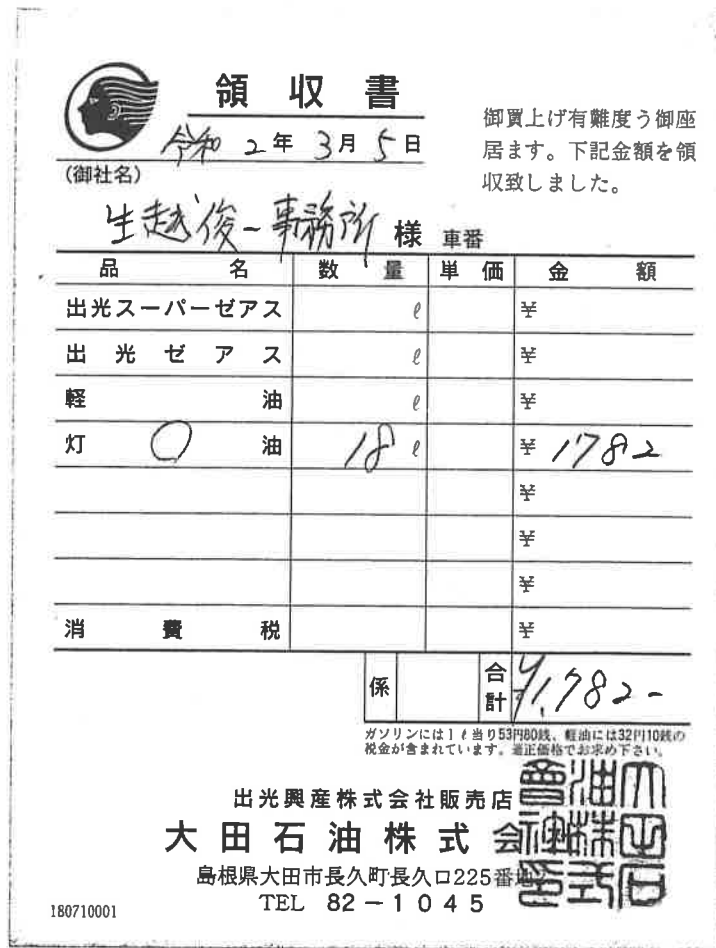 領収書
令和2年3月5日
御買上げ有難度う御座
居ます。下記金額を領
収致しました。
(御社名)
生越俊一事務所 様 車番
品名 数量 単価 金額
出光スーパーゼアス ℓ ¥
出光ゼアス ℓ ¥
軽油 ℓ ¥
灯油 18 ℓ ¥ 1782
¥
¥
¥
消費税 ¥
係 合計 ¥1,782-
ガソリンには1ℓ当り53円80銭、軽油には32円10銭の
税金が含まれています。適正価格でお求め下さい。
出光興産株式会社販売店
大田石油株式会社
島根県大田市長久町長久口225番地
TEL 82-1045
大田石
油株式
會社印
180710001